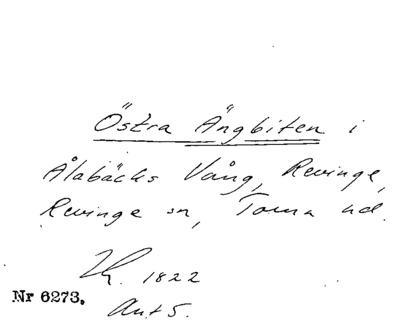 Östra Ängbiten i
Ålabäcks Vång, Revinge,
Revinge sn, Torna hd.
1822
Nr 6273.
Ant 5.